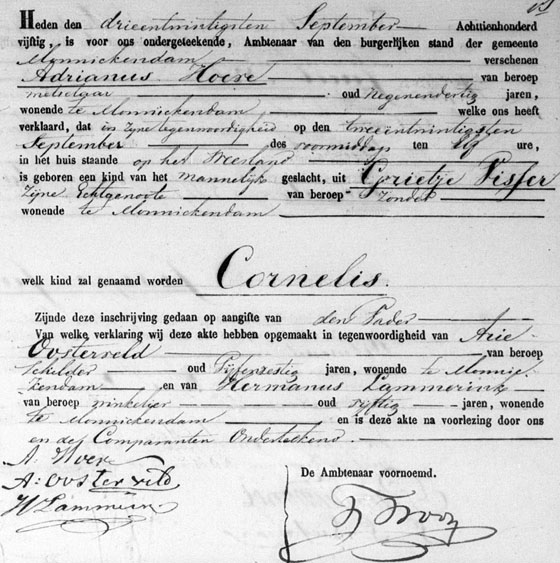 Heden den drieentwintigsten September Achttienhonderd
vijftig, is voor ons ondergeteekende, Ambtenaar van den burgerlijken stand der gemeente
Monnickendam verschenen
Adrianus Hoere van beroep
metselaar oud Negenendertig jaren,
wonende te Monnickendam welke ons heeft
verklaard, dat in zijne tegenwoordigheid op den tweeentwintigsten
September des voormiddags ten Elf ure,
in het huis staande op het Weesland
is geboren een kind van het mannelijk geslacht, uit Grietje Visser
Zijne Echtgenoote van beroep Zonder
wonende te Monnickendam
welk kind zal genaamd worden Cornelis.
Zijnde deze inschrijving gedaan op aangifte van den Vader
Van welke verklaring wij deze akte hebben opgemaakt in tegenwoordigheid van Arie
Oosterveld van beroep
schilder oud Vijfenzestig jaren, wonende te Monnic-
kendam, en van Hermanus Lammerink
van beroep winkelier oud vyftig jaren, wonende
te Monnickendam en is deze akte na voorlezing door ons
en des Comparanten Onderteekend.
A. Hoere
A: oosterveld
H Lammerink
De Ambtenaar voornoemd.